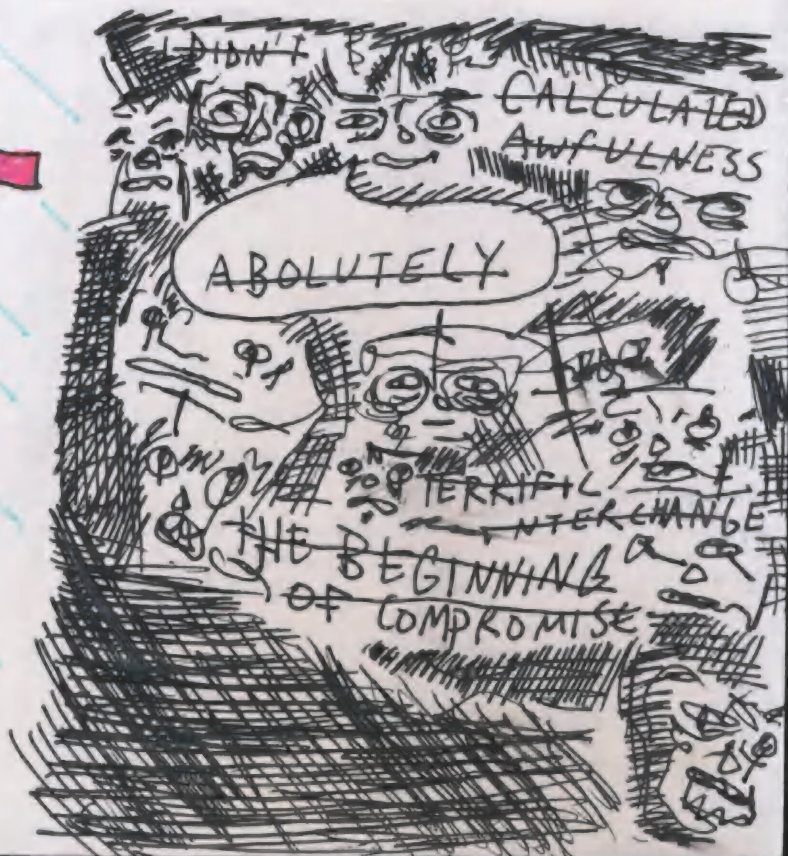 I DIDN'T
CALCULATED
AWFULNESS
ABOLUTELY
TERRIFIC
INTERCHANGE
THE BEGINNING
OF COMPROMISE